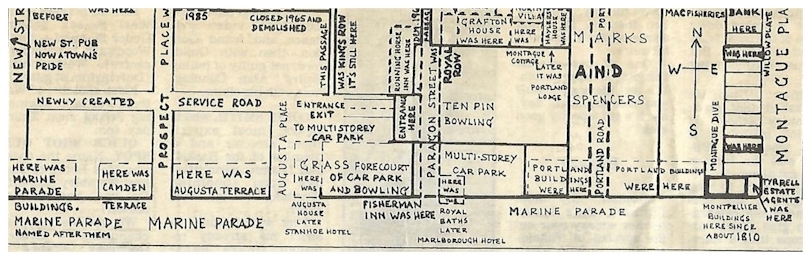 BEFORE
WAS HERE
NEW STR
NEW ST. PUB
NOW A TOWN'S
PRIDE
NEWLY CREATED
SERVICE ROAD
PROSPECT PLACE W
1985
CLOSED 1965 AND
DEMOLISHED
THIS PASSAGE
WAS KING'S ROW
IT'S STILL HERE
RUNNING HORSE
INN WAS HERE
PARAGON STREET WAS
ROYAL
ROW
GRAFTON
HOUSE
WAS HERE
VILLA
HERE
WAS
HOUSE
WAS HERE
MONTAGUE
COTTAGE
LATER
IT WAS
PORTLAND
LODGE
TEN PIN
BOWLING
MARKS
AND
SPENCERS
PORTLAND ROAD
MACFISHERIES
N
W
E
S
BANK
HERE
WAS HERE
WILLOW PLATE
MONTAGUE PLA
MONTAGUE DIVE
WAS HERE
ENTRANCE
EXIT
TO MULTISTOREY
CAR PARK
ENTRANCE
HERE
AUGUSTA PLACE
HERE WAS
MARINE
PARADE
HERE WAS
CAMDEN
TERRACE
HERE WAS
AUGUSTA TERRACE
GRASS FORECOURT
OF CAR PARK
AND BOWLING
HERE
WAS
AUGUSTA
HOUSE
LATER
STANHOE HOTEL
FISHERMAN
INN WAS HERE
MULTI-STOREY
CAR PARK
HERE
WAS
THE
ROYAL
BATHS
LATER
MARLBOROUGH HOTEL
PORTLAND
BUILDINGS
WERE HERE
PORTLAND BUILDINGS
WERE HERE
TYRRELL
ESTATE
AGENTS
WAS
HERE
MONTPELLIER
BUILDINGS
HERE SINCE
ABOUT 1810
BUILDINGS.
MARINE PARADE
NAMED AFTER THEM
MARINE PARADE
MARINE PARADE